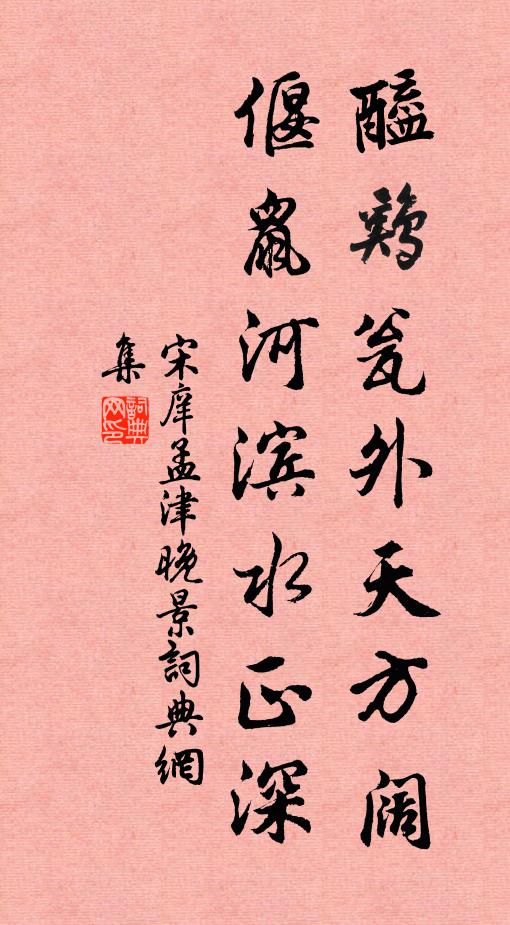 醯鸡瓮外天方阔
偃鼠河滨水正深
宋庠孟津晚景詞典網
集
詞典
网印